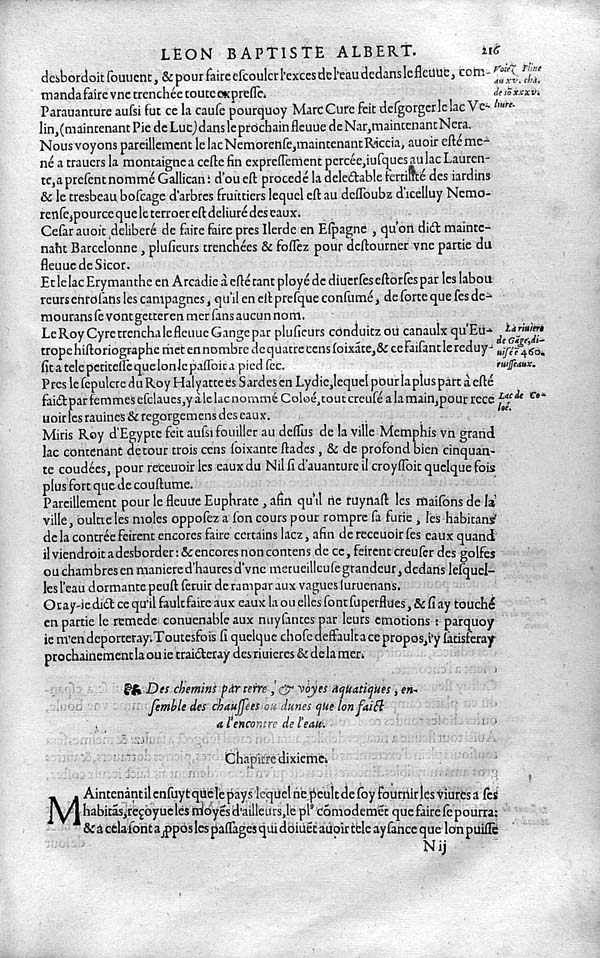 LEON BAPTISTE ALBERT. 216
desbordoit souuent, & pour faire escouler l'exces de l'eau dedans le fleuue, com-
manda faire vne trenchée toute expresse.
Parauanture aussi fut ce la cause pourquoy Marc Cure feit desgorger le lac Ve-
lin, (maintenant Pie de Luc) dans le prochain fleuue de Nar, maintenant Nera.
Nous voyons pareillement le lac Nemorense, maintenant Riccia, auoir esté me-
né a trauers la montaigne a ceste fin expressement percée, iusques au lac Lauren-
te, a present nommé Gallican: d'ou est procedé la delectable fertilité des iardins
& le tresbeau boscage d'arbres fruittiers lequel est au dessoubz d'icelluy Nemo-
rense, pource que le terroer est deliuré des eaux.
Cesar auoit deliberé de faire faire pres Ilerde en Espagne, qu'on dict mainte-
nant Barcelonne, plusieurs trenchées & fossez pour destourner vne partie du
fleuue de Sicor.
Et le lac Erymanthe en Arcadie à esté tant ployé de diuerses estorses par les labou
reurs enrosans les campagnes, qu'il en est presque consumé, de sorte que ses de-
mourans se vont getter en mer sans aucun nom.
Le Roy Cyre trencha le fleuue Gange par plusieurs conduitz ou canaulx qu'Eu-
trope historiographe met en nombre de quatre cens soixāte, & ce faisant le reduy-
sit a tele petitesse que lon le passoit a pied sec.
Pres le sepulcre du Roy Halyatte es Sardes en Lydie, lequel pour la plus part à esté
faict par femmes esclaues, y à le lac nommé Coloé, tout creusé a la main, pour rece
uoir les rauines & regorgemens des eaux.
Miris Roy d'Egypte feit aussi fouiller au dessus de la ville Memphis vn grand
lac contenant de tour trois cens soixante stades, & de profond bien cinquan-
te coudées, pour receuoir les eaux du Nil si d'auanture il croyssoit quelque fois
plus fort que de coustume.
Pareillement pour le fleuue Euphrate, afin qu'il ne ruynast les maisons de la
ville, oultre les moles opposez a son cours pour rompre sa furie, les habitans
de la contrée feirent encores faire certains lacz, afin de receuoir ses eaux quand
il viendroit a desborder: & encores non contens de ce, feirent creuser des golfes
ou chambres en maniere d'haures d'vne merueilleuse grandeur, dedans lesquel-
les l'eau dormante peust seruir de rampar aux vagues suruenans.
Or ay-ie dict ce qu'il fault faire aux eaux la ou elles sont superflues, & si ay touché
en partie le remede conuenable aux nuysantes par leurs emotions: parquoy
ie m'en deporteray. Toutesfois si quelque chose deffault a ce propos, i'y satisferay
prochainement la ou ie traicteray des riuieres & de la mer.
Des chemins par terre, & voyes aquatiques, en-
semble des chaussées ou dunes que lon faict
a l'encontre de l'eau.
Chapitre dixieme.
Maintenant il ensuyt que le pays lequel ne peult de soy fournir les viures a ses
habitās, reçoyue les moyēs d'ailleurs, le plꝰ cōmodemēt que faire se pourra:
& a cela sont a ꝓpos les passages qui doiuēt auoir tele aysance que lon puisse
N ij
Voiez Pline
au xv. cha.
de sō xxxv.
liure.
La riuiere
de Gāge, di-
uisée 460.
ruisseaux.
Lac de Co-
loé.